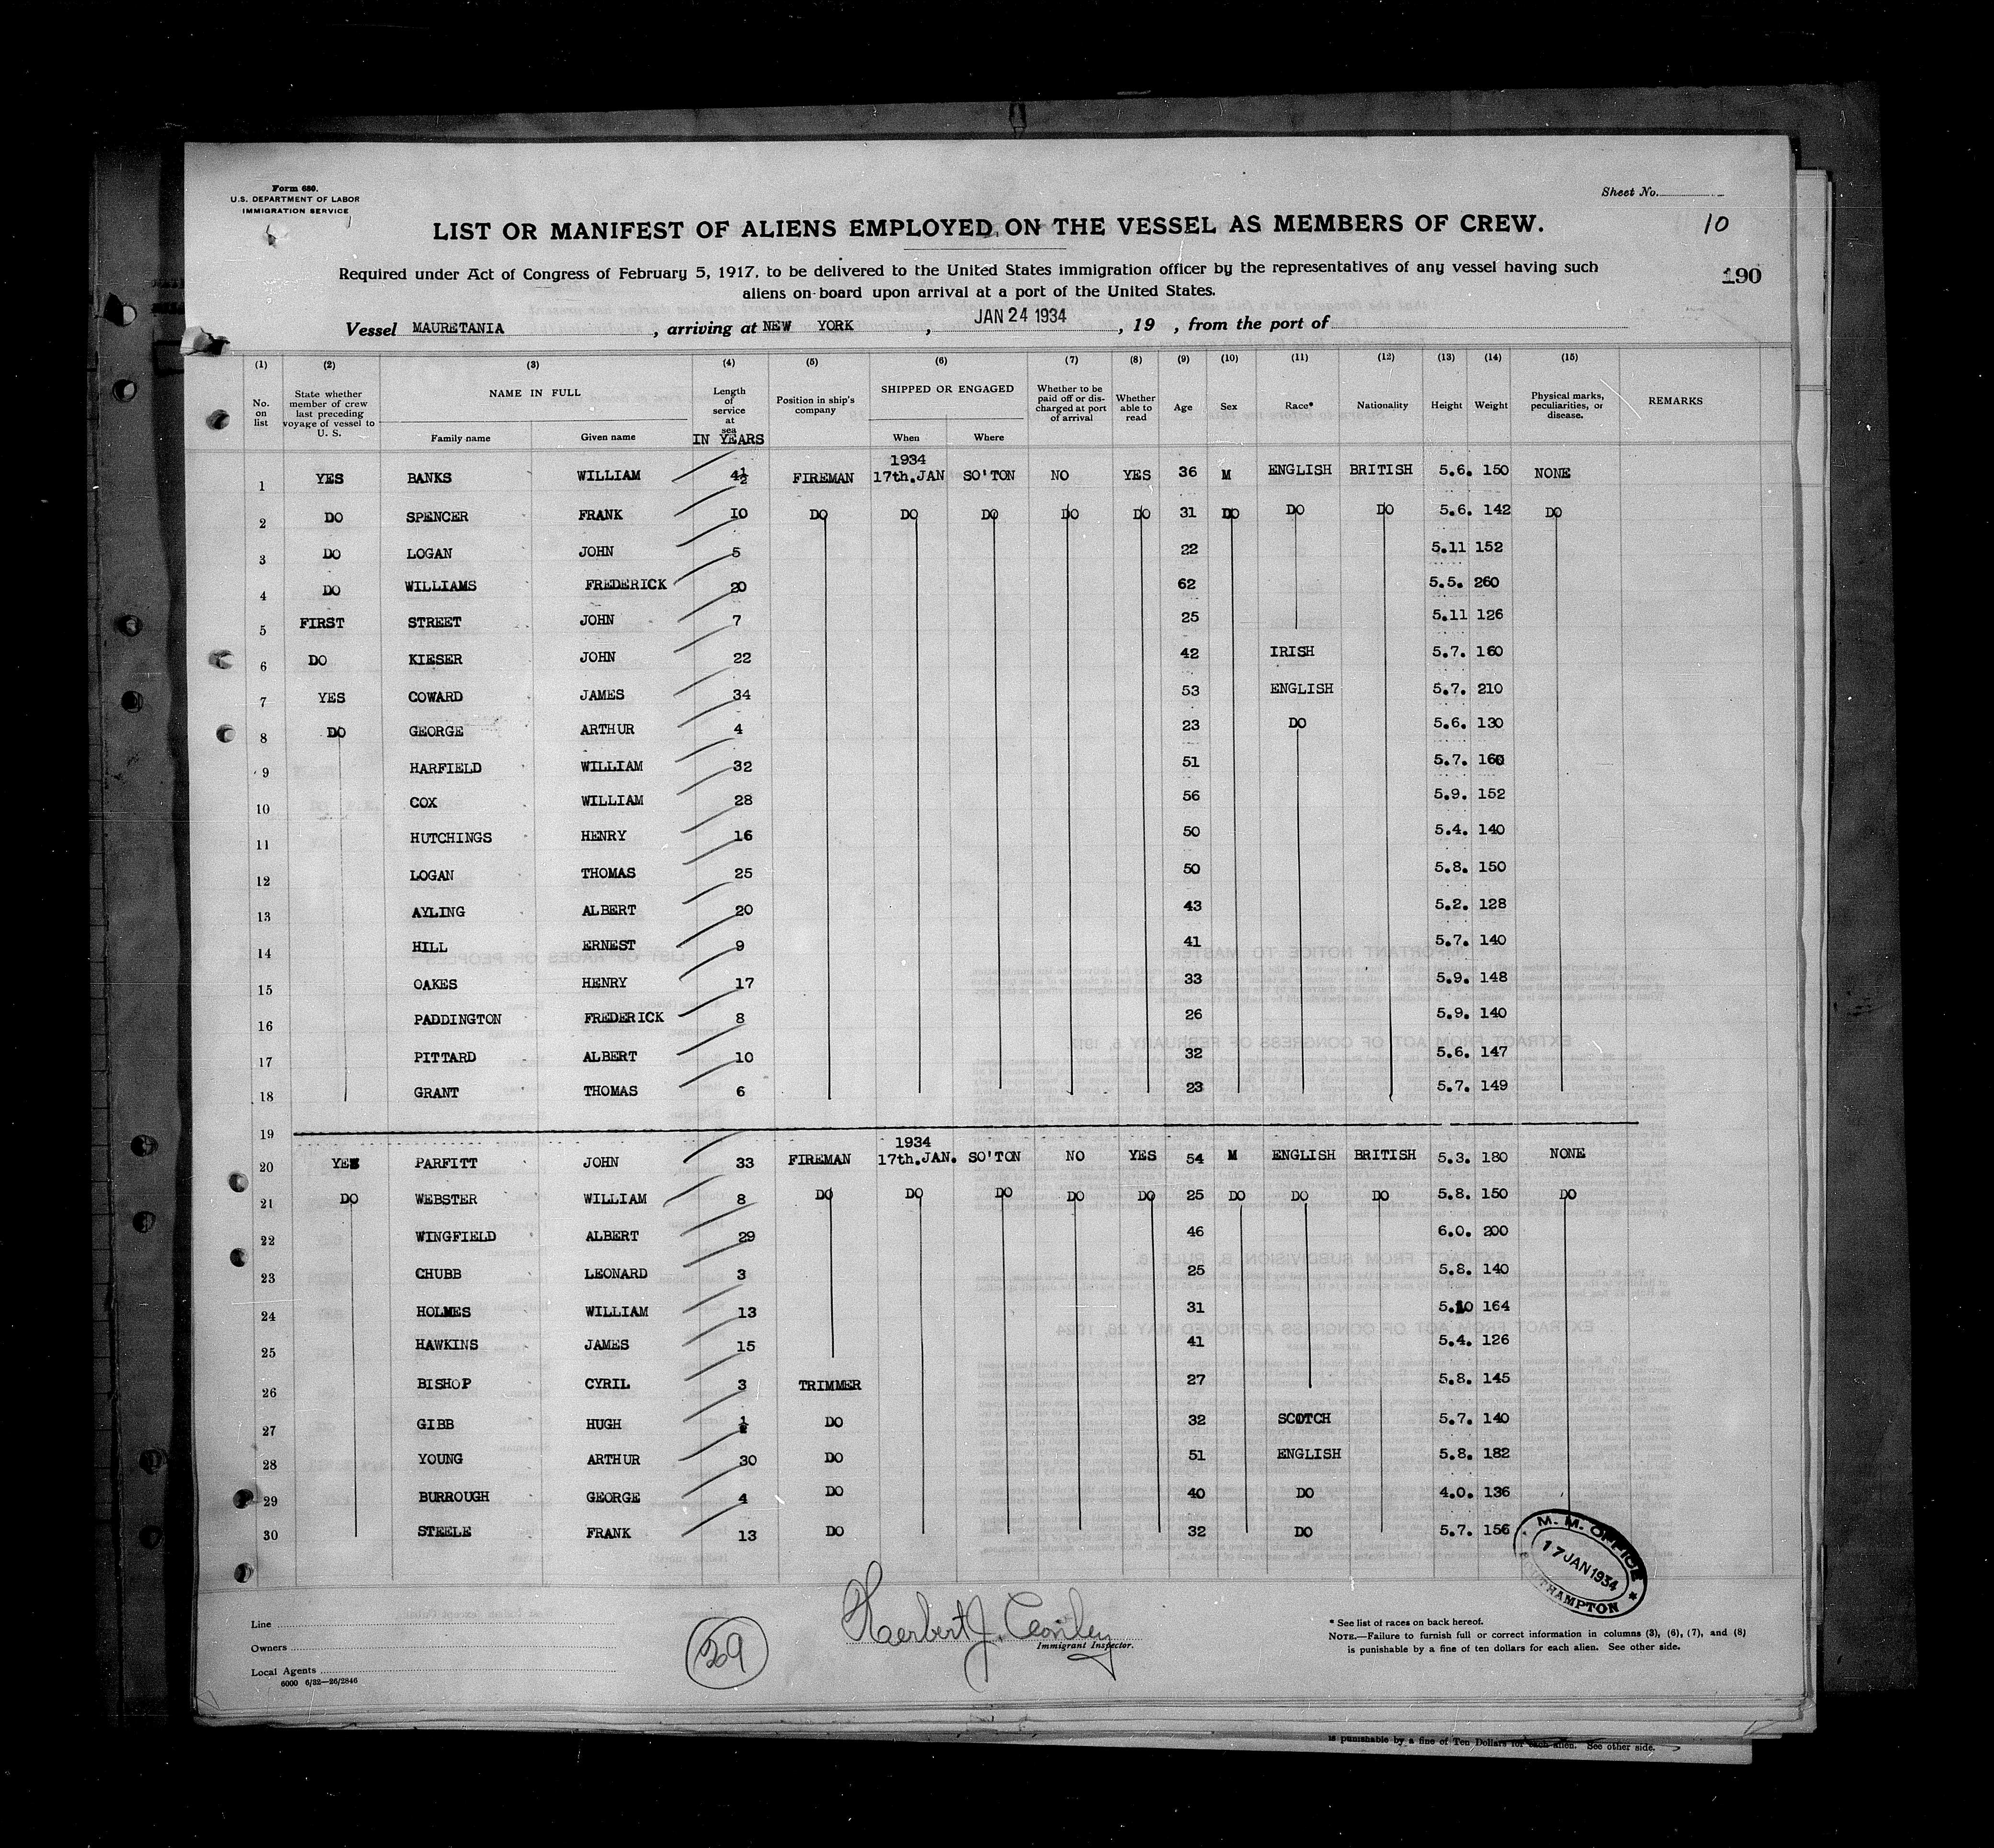 Form 680.
U.S. DEPARTMENT OF LABOR
IMMIGRATION SERVICE
Sheet No.
10
LIST OR MANIFEST OF ALIENS EMPLOYED ON THE VESSEL AS MEMBERS OF CREW.
190
Required under Act of Congress of February 5, 1917, to be delivered to the United States immigration officer by the representatives of any vessel having such
aliens on board upon arrival at a port of the United States.
Vessel MAURETANIA, arriving at NEW YORK, JAN 24 1934, 19 , from the port of
(1) (2) (3) (4) (5) (6) (7) (8) (9) (10) (11) (12) (13) (14) (15)
No. on list
State whether member of crew last preceding voyage of vessel to U. S.
NAME IN FULL
Family name Given name
Length of service at sea
IN YEARS
Position in ship's company
SHIPPED OR ENGAGED
When Where
Whether to be paid off or discharged at port of arrival
Whether able to read
Age Sex Race* Nationality Height Weight
Physical marks, peculiarities, or disease.
REMARKS
1934
1 YES BANKS WILLIAM 4½ FIREMAN 17th.JAN SO'TON NO YES 36 M ENGLISH BRITISH 5.6. 150 NONE
2 DO SPENCER FRANK 10 DO DO DO DO DO 31 DO DO DO 5.6. 142 DO
3 DO LOGAN JOHN 5 22 5.11 152
4 DO WILLIAMS FREDERICK 20 62 5.5. 260
5 FIRST STREET JOHN 7 25 5.11 126
6 DO KIESER JOHN 22 42 IRISH 5.7. 160
7 YES COWARD JAMES 34 53 ENGLISH 5.7. 210
8 DO GEORGE ARTHUR 4 23 DO 5.6. 130
9 HARFIELD WILLIAM 32 51 5.7. 160
10 COX WILLIAM 28 56 5.9. 152
11 HUTCHINGS HENRY 16 50 5.4. 140
12 LOGAN THOMAS 25 50 5.8. 150
13 AYLING ALBERT 20 43 5.2. 128
14 HILL ERNEST 9 41 5.7. 140
15 OAKES HENRY 17 33 5.9. 148
16 PADDINGTON FREDERICK 8 26 5.9. 140
17 PITTARD ALBERT 10 32 5.6. 147
18 GRANT THOMAS 6 23 5.7. 149
19
1934
20 YES PARFITT JOHN 33 FIREMAN 17th.JAN. SO'TON NO YES 54 M ENGLISH BRITISH 5.3. 180 NONE
21 DO WEBSTER WILLIAM 8 DO DO DO DO DO 25 DO DO DO 5.8. 150 DO
22 WINGFIELD ALBERT 29 46 6.0. 200
23 CHUBB LEONARD 3 25 5.8. 140
24 HOLMES WILLIAM 13 31 5.10 164
25 HAWKINS JAMES 15 41 5.4. 126
26 BISHOP CYRIL 3 TRIMMER 27 5.8. 145
27 GIBB HUGH ½ DO 32 SCOTCH 5.7. 140
28 YOUNG ARTHUR 30 DO 51 ENGLISH 5.8. 182
29 BURROUGH GEORGE 4 DO 40 DO 4.0. 136
30 STEELE FRANK 13 DO 32 DO 5.7. 156
M. M. OFFICE
17 JAN 1934
SOUTHAMPTON
Line
Owners
Local Agents
6000 6/32—26/2846
29
Herbert J. Conley
Immigrant Inspector.
* See list of races on back hereof.
NOTE.—Failure to furnish full or correct information in columns (3), (6), (7), and (8)
is punishable by a fine of ten dollars for each alien. See other side.
is punishable by a fine of Ten Dollars for each alien. See other side.